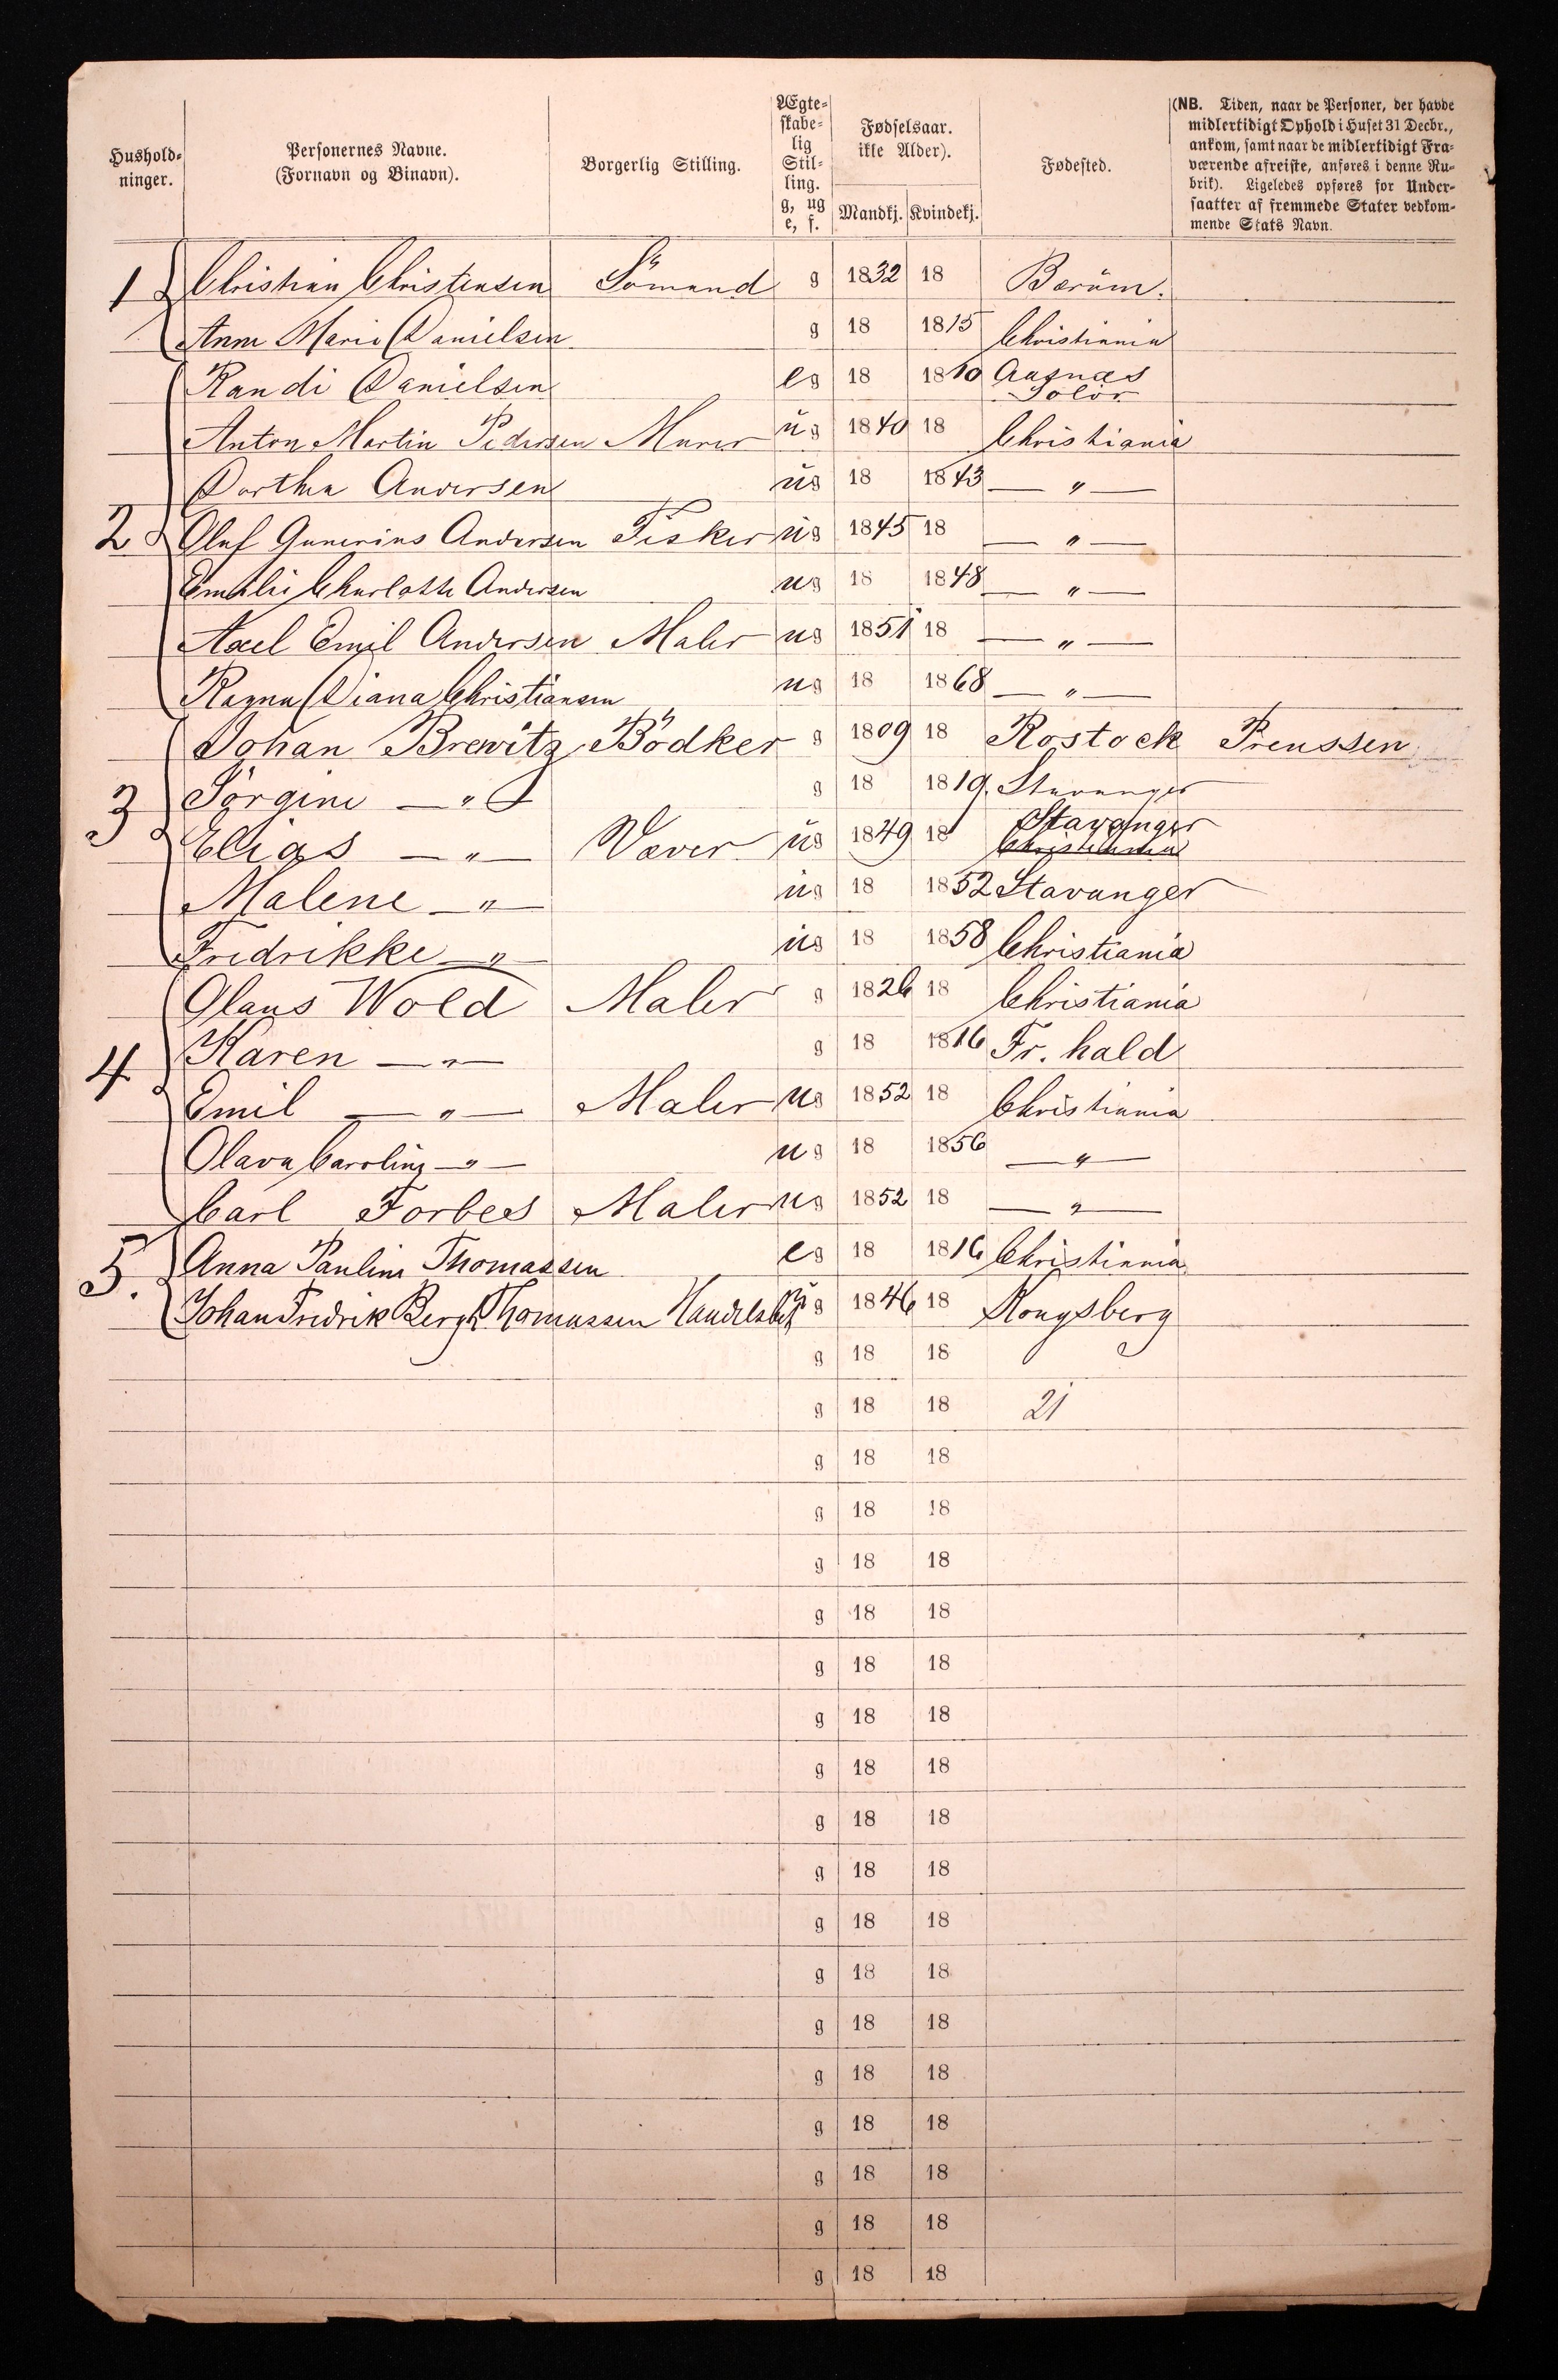 Hushold-
ninger.
Personernes Navne.
(Fornavn og Binavn).
Borgerlig Stilling.
Ægte-
skabe-
lig
Stil-
ling.
g, ug
e, f.
Fødselsaar.
ikke Alder).
Mandkj. Kvindekj.
Fødested.
(NB. Tiden, naar de Personer, der havde
midlertidigt Ophold i Huset 31 Decbr.,
ankom, samt naar de midlertidigt Fra-
værende afreiste, anføres i denne Ru-
brik). Ligeledes opføres for Under-
saatter af fremmede Stater vedkom-
mende Stats Navn.
1 Christian Christensen Sömand g 1832 18 Bærum.
Anne Marie Danielsen g 18 1815 Christiania
Randi Danielsen eg 18 1810 Aasnæs
Solör
Anton Martin Pedersen Murer ug 1840 18 Christiania
Dorthea Andersen ug 18 1843 — „ —
2 Oluf Gunerius Andersen Fisker ug 1845 18 — „ —
Emilie Charlotte Andersen ug 18 1848 — „ —
Axel Emil Andersen Maler ug 1851 18 — „ —
Ragna Diana Christiansen ug 18 1868 — „ —
Johan Brewitz Bödker g 1809 18 Rostock Preussen
Sörgine — „ — g 18 1819. Stavanger
3 Elias — „ — Væver ug 1849 18 Stavanger
Christiania
Malene — „ — ug 18 1852 Stavanger
Fredrikke — „ — ug 18 1858 Christiania
Olaus Wold Maler g 1826 18 Christiania
4 Karen — „ — g 18 1816 Fr. hald
Emil — „ — Maler ug 1852 18 Christiania
Olava Caroline — „ — ug 18 1856 — „ —
Carl Forbes Maler ug 1852 18 — „ —
5. Anna Pauline Thomassen eg 18 1816 Christiania
Johan Fredrik Bergh Thomassen Handelsbetj ug 1846 18 Kongsberg
g 18 18
g 18 18 21
g 18 18
g 18 18
g 18 18
g 18 18
g 18 18
g 18 18
g 18 18
g 18 18
g 18 18
g 18 18
g 18 18
g 18 18
g 18 18
g 18 18
g 18 18
g 18 18
g 18 18